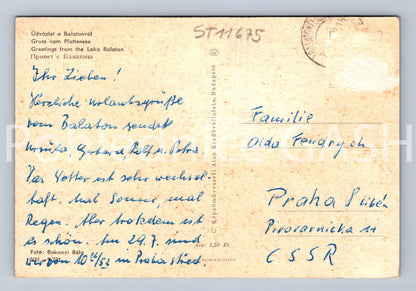 Üdvözlet a Balatonról
Gruss vom Plattensee
Greetings from the Leke Balaton
Привет с Балатина
ST11675
Ihr Lieben!
Herzliche Urlaubsgrüße
vom Balaton sendet
Ursula, Gerhard, Rolf u. Petra.
Das Wetter ist sehr wechsel-
haft. Mal Sonne, mal
Regen. Aber trotzdem ist
es schön. Am 29.7. sind
wir von 10
in Praha Střed.
Foto: Bakonyi Béla
Képzőművészeti Alap Kiadóvállalata, Budapest
Ára: 1,50 Ft
Familie
Olda
Praha
Pivovarnická 11
ČSSR